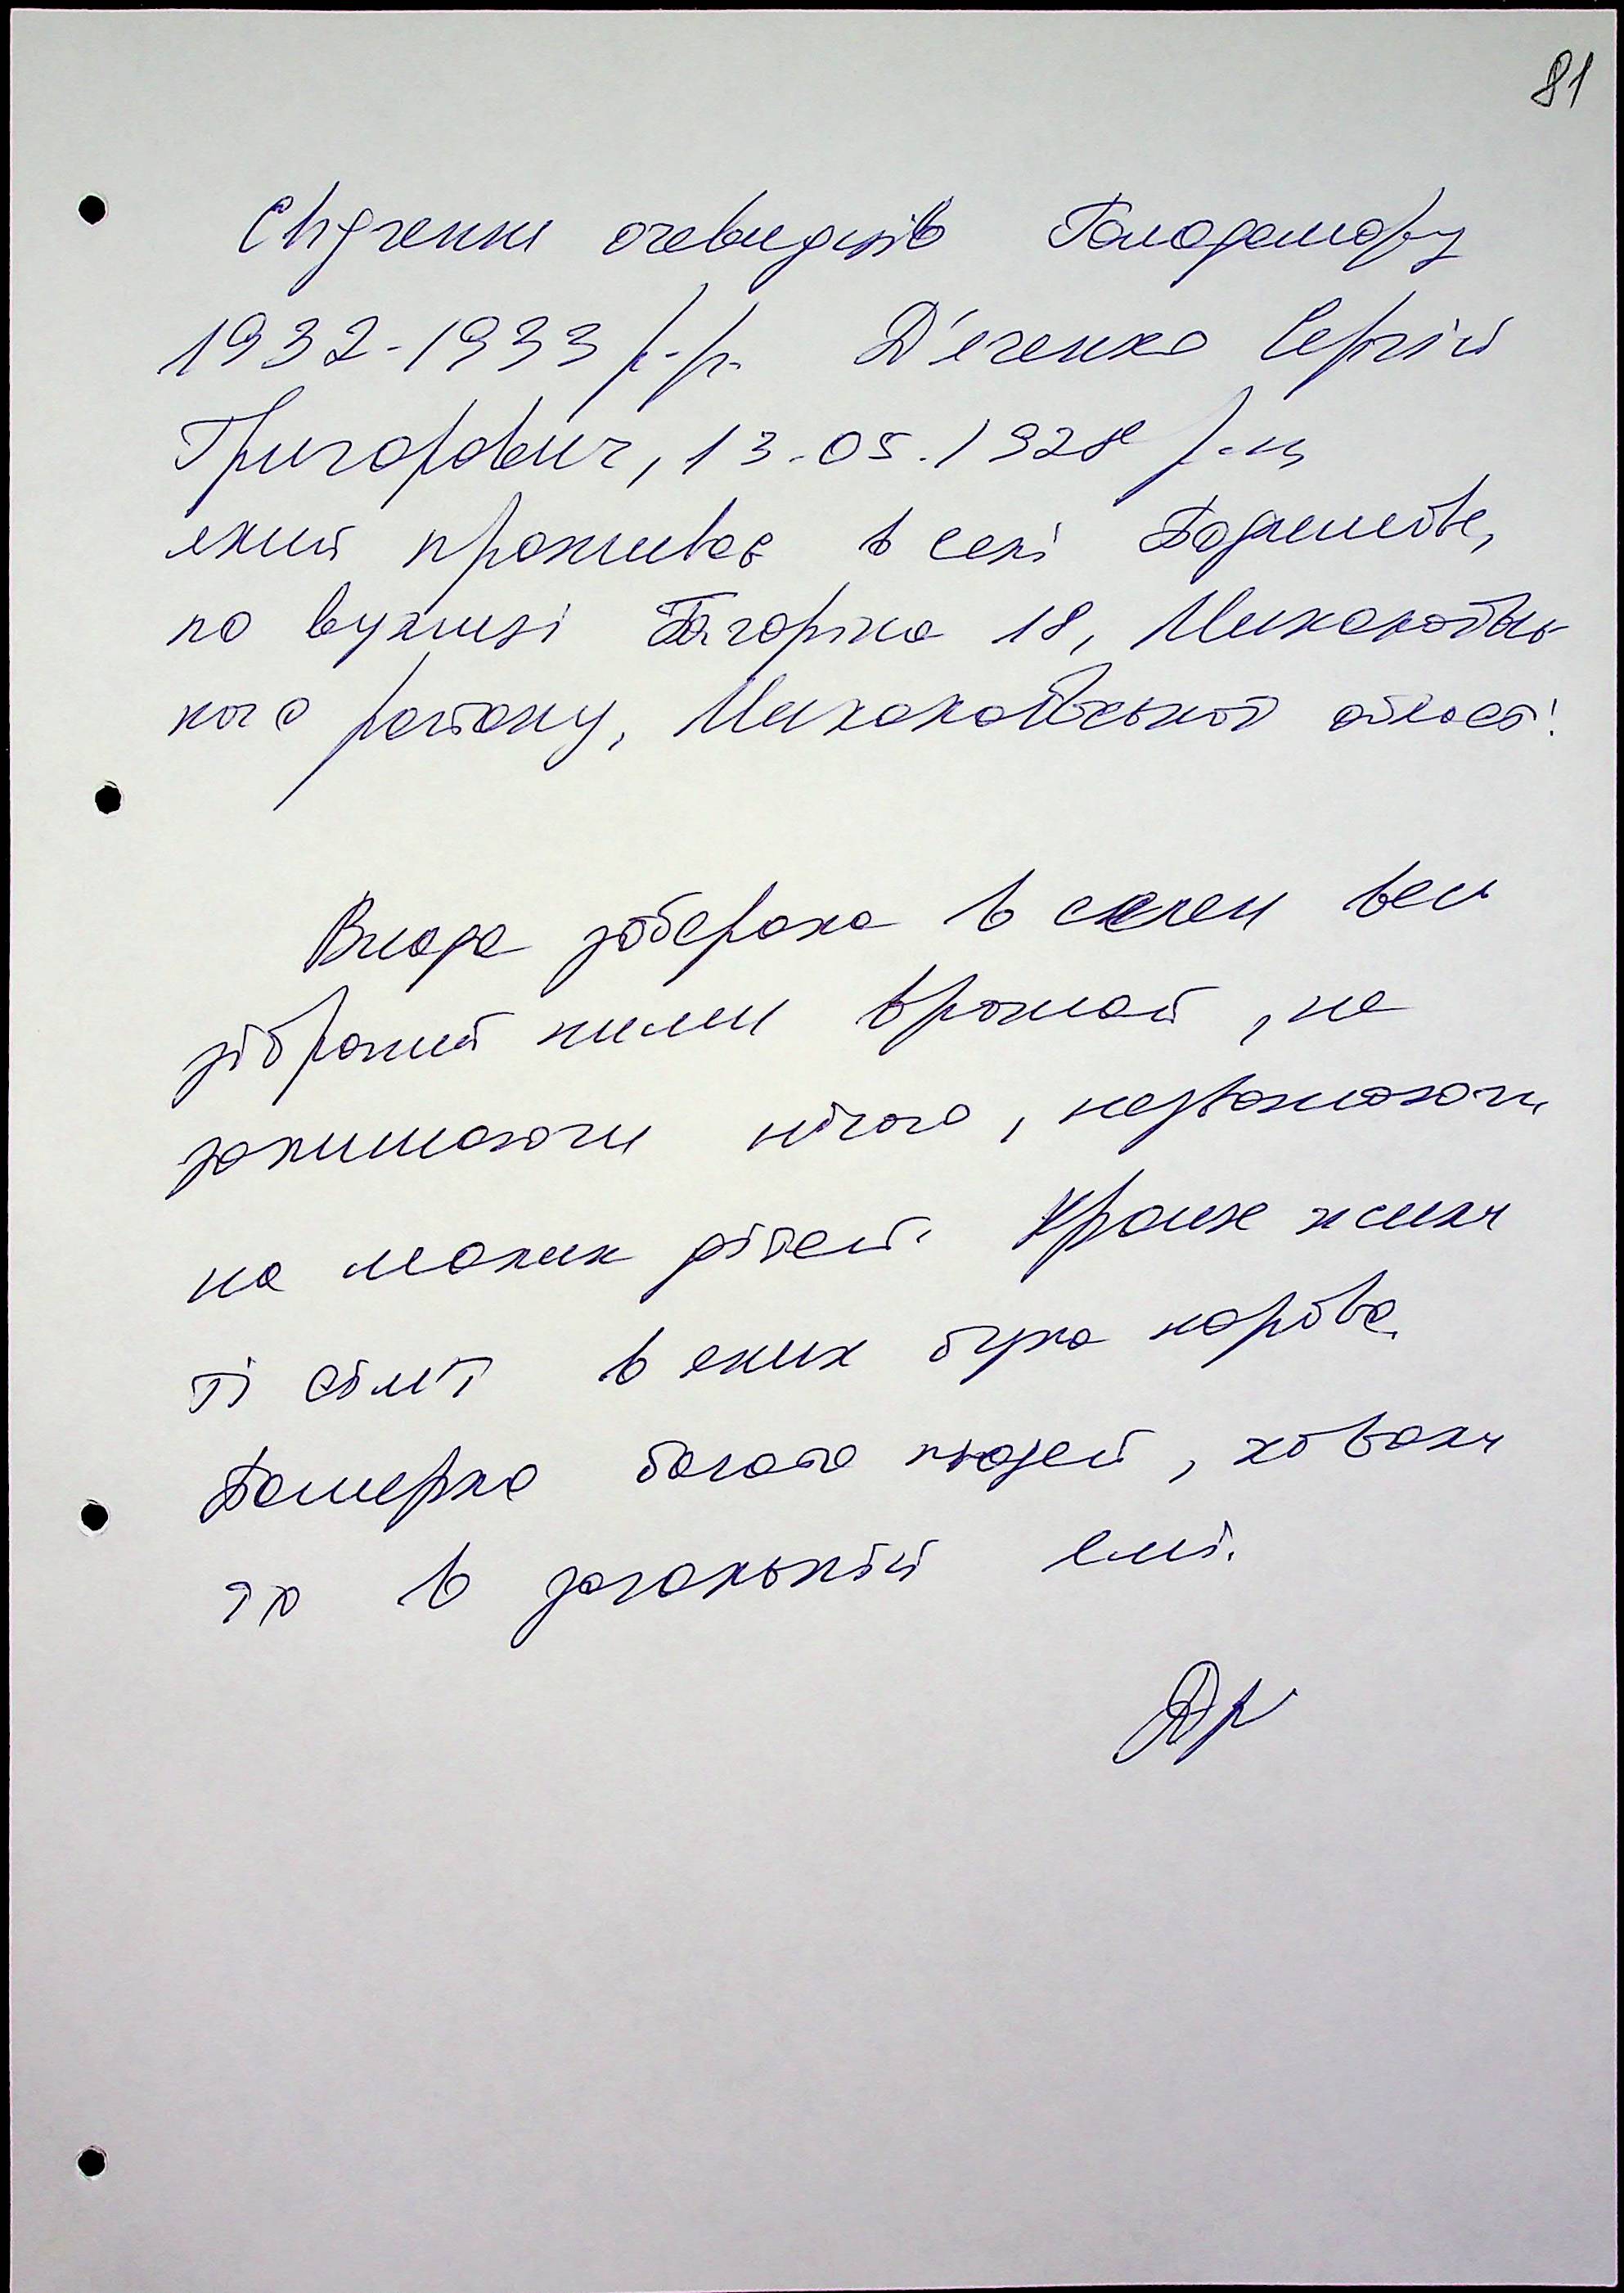 81
Свідчення очевидців Голодомору
1932-1933 р.р. Д'яченко Сергій
Григорович, 13.05.1928 р.н,
який проживає в селі
по вулиці Гагаріна 18, Миколаївсь-
кого району, Миколаївської області
Влада забирала в селян весь
зібраний ними врожай, не
залишаючи нічого, незважаючи
на малих дітей. Краще жили
ті сім'ї в яких була корова.
Померло багато людей, ховали
їх в загальній ямі.